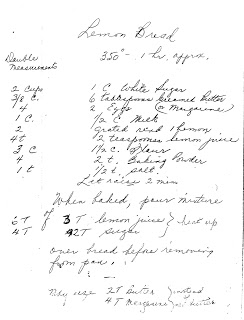 Lemon Bread
Double 350° - 1 hr. approx.
Measurements
2 cups 1 C White Sugar
3/8 C. 6 tablespoons creamed butter
4 2 Eggs (or Margarine)
1 C. 1/2 C Milk
2 grated rind 1 lemon
4t 2 teaspoons lemon juice
3 C 1 1/2 C. Flour
4 2 t. Baking Powder
1 t 1/2 t. salt.
Let raise 2 min
When baked, pour mixture
of
6 T 3 T lemon juice } heat up
4 T 2T sugar
over bread before removing
from pan.
May use 2T butter instead
4 T margarine